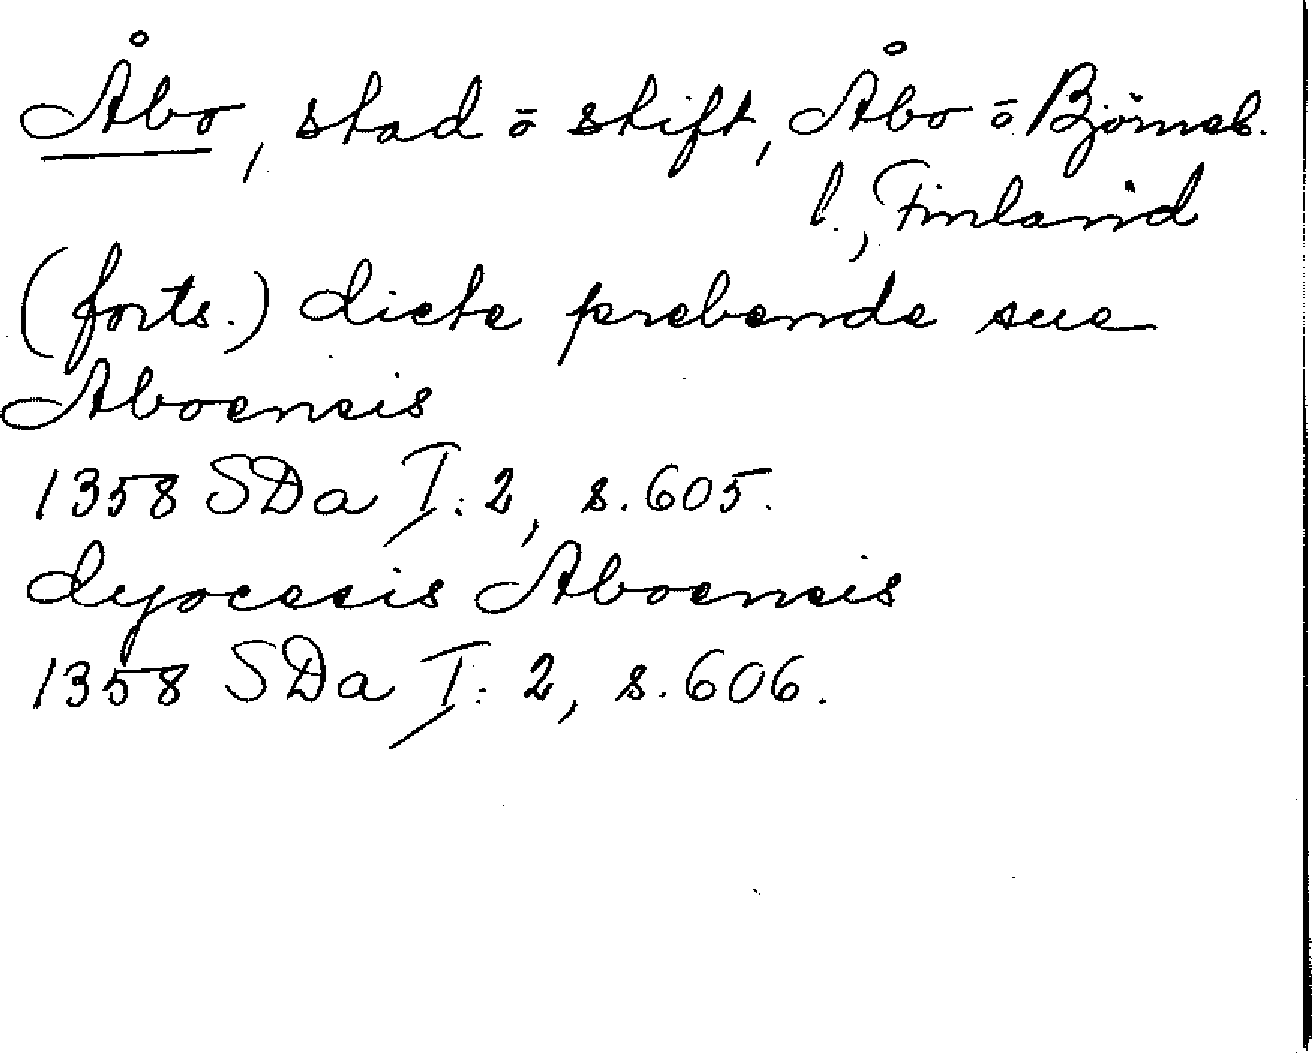 Åbo, stad o. stift, Åbo o. Björneb.
l., Finland
(forts.) dicte prebende sue
Aboensis
1358 SDa I: 2, s. 605.
dyocesis Aboensis
1358 SDa I: 2, s. 606.